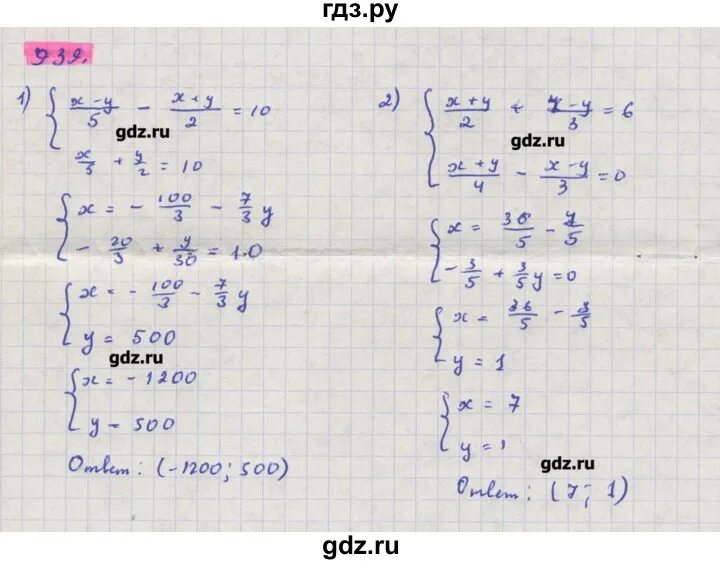 гдз.ру
939.
1) { (x-y)/5 - (x+y)/2 = 10
gdz.ru
x/5 + y/2 = 10
{ x = - 100/3 - 7/3 y
- 20/3 + y/30 = 10
{ x = - 100/3 - 7/3 y
y = 500
gdz.ru
{ x = - 1200
y = 500
Ответ: (-1200; 500)
2) { (x+y)/2 + (x-y)/3 = 6
gdz.ru
(x+y)/4 - (x-y)/3 = 0
{ x = 36/5 - y/5
- 3/5 + 3/5 y = 0
{ x = 36/5 -
y = 1
{ x = 7
y = 1
gdz.ru
Ответ: (7; 1)
gdz.ru